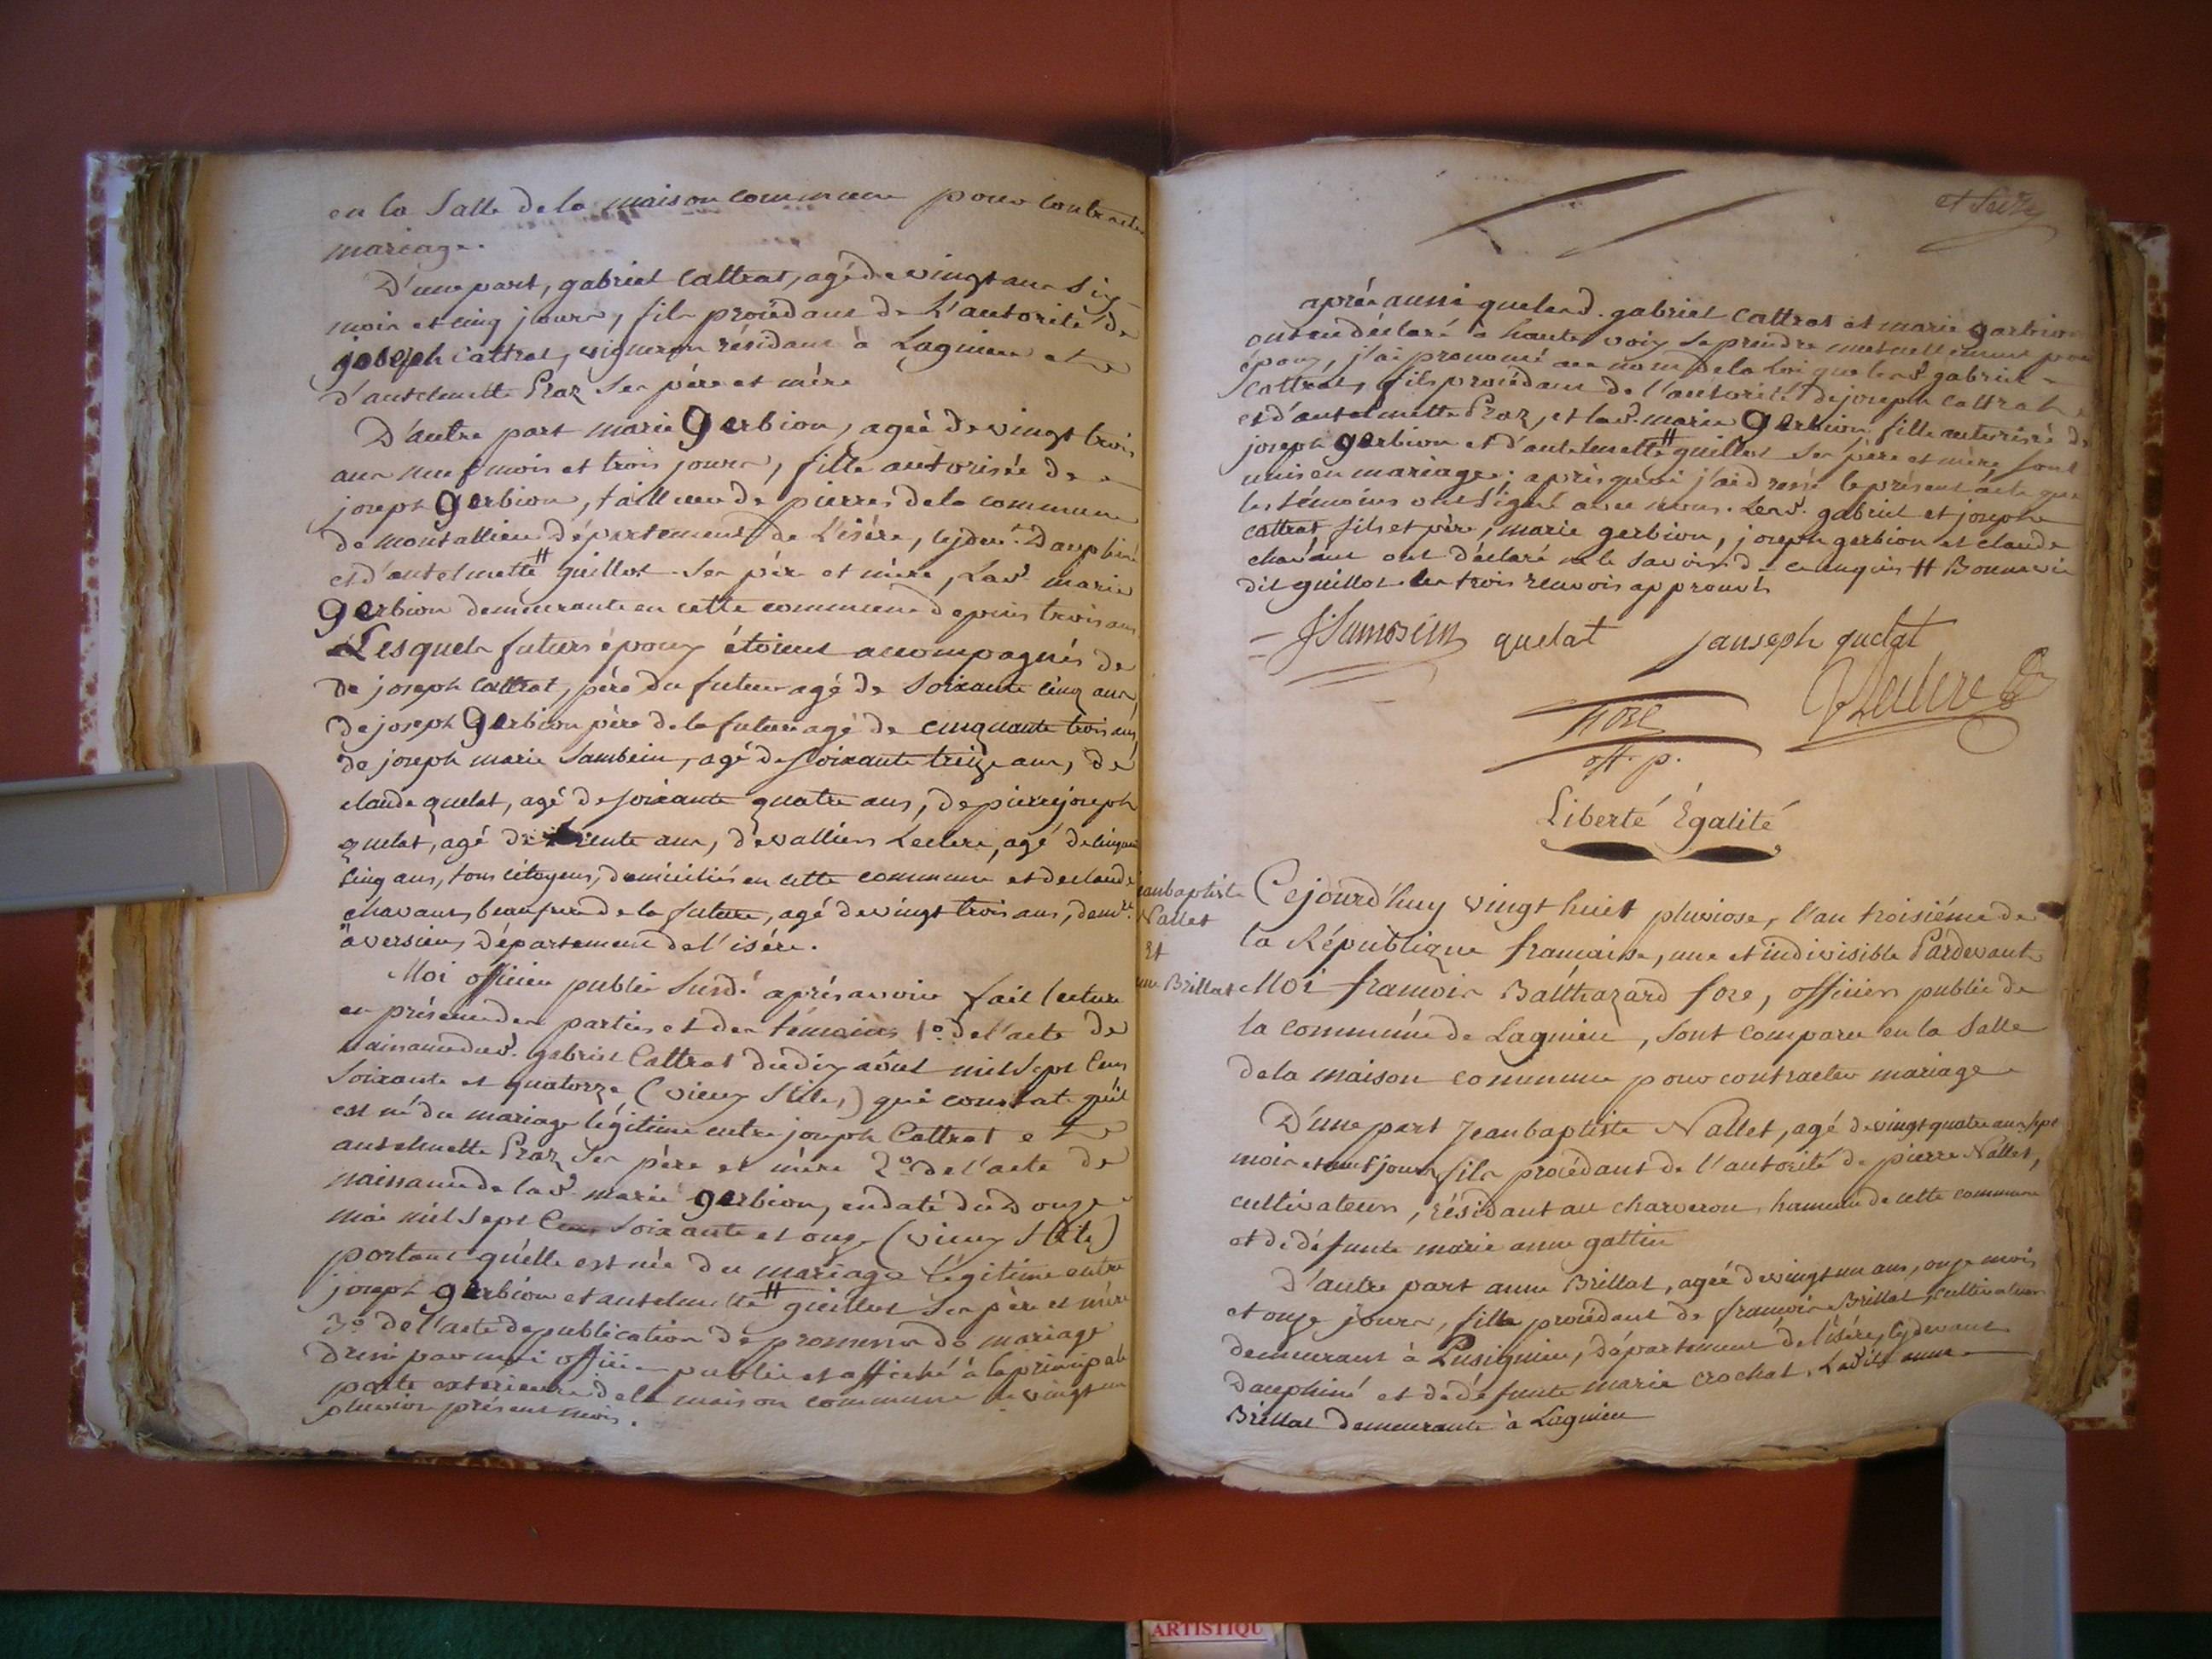 en la Salle de la maison commune pour contracter
mariage.
D'une part, gabriel Cattrat, agé de vingt ans Six
mois et cinq jours, fils procédant de L'autorité de
joseph Cattrat, vigneron résidant à Lagnieu et
d'antelmette Praz Ses père et mère
D'autre part marie gerbion, ageé de vingt trois
ans neuf mois et trois jours, fille autorisée de
joseph gerbion, tailleur de pierres de la commune
de montallieu département de L'isére, cydevt. Dauphiné
et d'antelmette # guillot Ses père et mère, Lad. marie
gerbion demeurante en cette commune depuis trois ans
Lesquels futurs époux étoient accompagnés de
de joseph Cattrat, père du futur agé de Soixante cinq ans,
de joseph gerbion père de la future agé de cinquante trois ans,
de joseph marie Sambein, agé de Soixante treize ans, de
claude quelat, agé de soixante quatre ans, de pierre joseph
quelat, agé de trente ans, de vallier Leclerc, agé de cinquante
cinq ans, tous citoyens, domiciliés en cette commune et de claude
chavant, beau frere de la future, agé de vingt trois ans, demt.
à versieu, Département de l'isére.
Moi officier public Susdt. aprés avoir fait lecture
en présence des parties et des témoins 1º. de l'acte de
naissance dud. gabriel Cattrat du dix août mil Sept Cens
Soixante et quatorze (vieux Stile,) qui constate qu'il
est né du mariage légitime entre joseph Cattrat et
antelmette Praz Ses père et mère 2º. de l'acte de
naissance de lad. marie gerbion, en date du douze
mai mil Sept Cens Soixante et onze (vieux Stile)
portant qu'elle est née du mariage légitime entre
joseph gerbion et antelmette # guillot Ses père et mère
3º. de l'acte de publication de promesse de mariage
dressé par moi officier public et affiché à la principale
porte exterieure de la maison commune le vingt un
pluviose présent mois.
et Seize
aprés aussi que lesd. gabriel Cattrat et marie gerbion
ont eu déclaré à haute voix Se prendre mutuellement pour
époux, j'ai prononcé au nom de la Loi que led. gabriel
Cattrat, fils procédant de l'autorité de joseph Cattrat
et d'antelmette Praz, et lad. marie gerbion fille autorisée de
joseph gerbion et d'antelmette # guillot Ses père et mère, Sont
unis en mariage; aprés quoi j'ai dressé le présent acte que
les témoins ont Signé avec nous. Lesd. gabriel et joseph
Cattrat fils et père, marie gerbion, joseph gerbion et claude
chavant ont déclaré ne le Savoir de ce enquis # Bonnevie
dit guillot les trois renvois approuvés
quelat jauseph quelat
Leclerc
fore
off. p.
Liberté Égalité
Jean baptiste
Nallet
Et
anne Brillat
Cejourd'huy vingt huit pluviose, l'an troisiéme de
la République francaise, une et indivisible Pardevant
Moi francois Balthazard fore, officier public de
la commune de Lagnieu, Sont comparu en la Salle
de la maison commune pour contracter mariage
D'une part Jean baptiste Nallet, agé de vingt quatre ans Sept
mois et neuf jours, fils procédant de l'autorité de pierre Nallet,
cultivateur, résidant au charveron hameau de cette commune
et de défunte marie anne gattin
D'autre part anne Brillat, ageé de vingt un ans, onze mois
et onze jours, fille procédant de francois Brillat, cultivateur
demeurant à Pusignieu, département de l'isére, cydevant
dauphiné et de défunte marie crochat, Ladite anne
Brillat demeurante à Lagnieu
ARTISTIQU